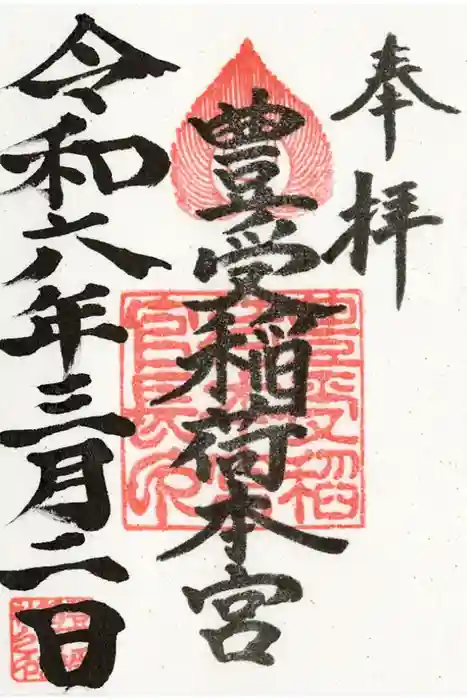 奉拝
豊受稲荷本宮
令和六年三月二日